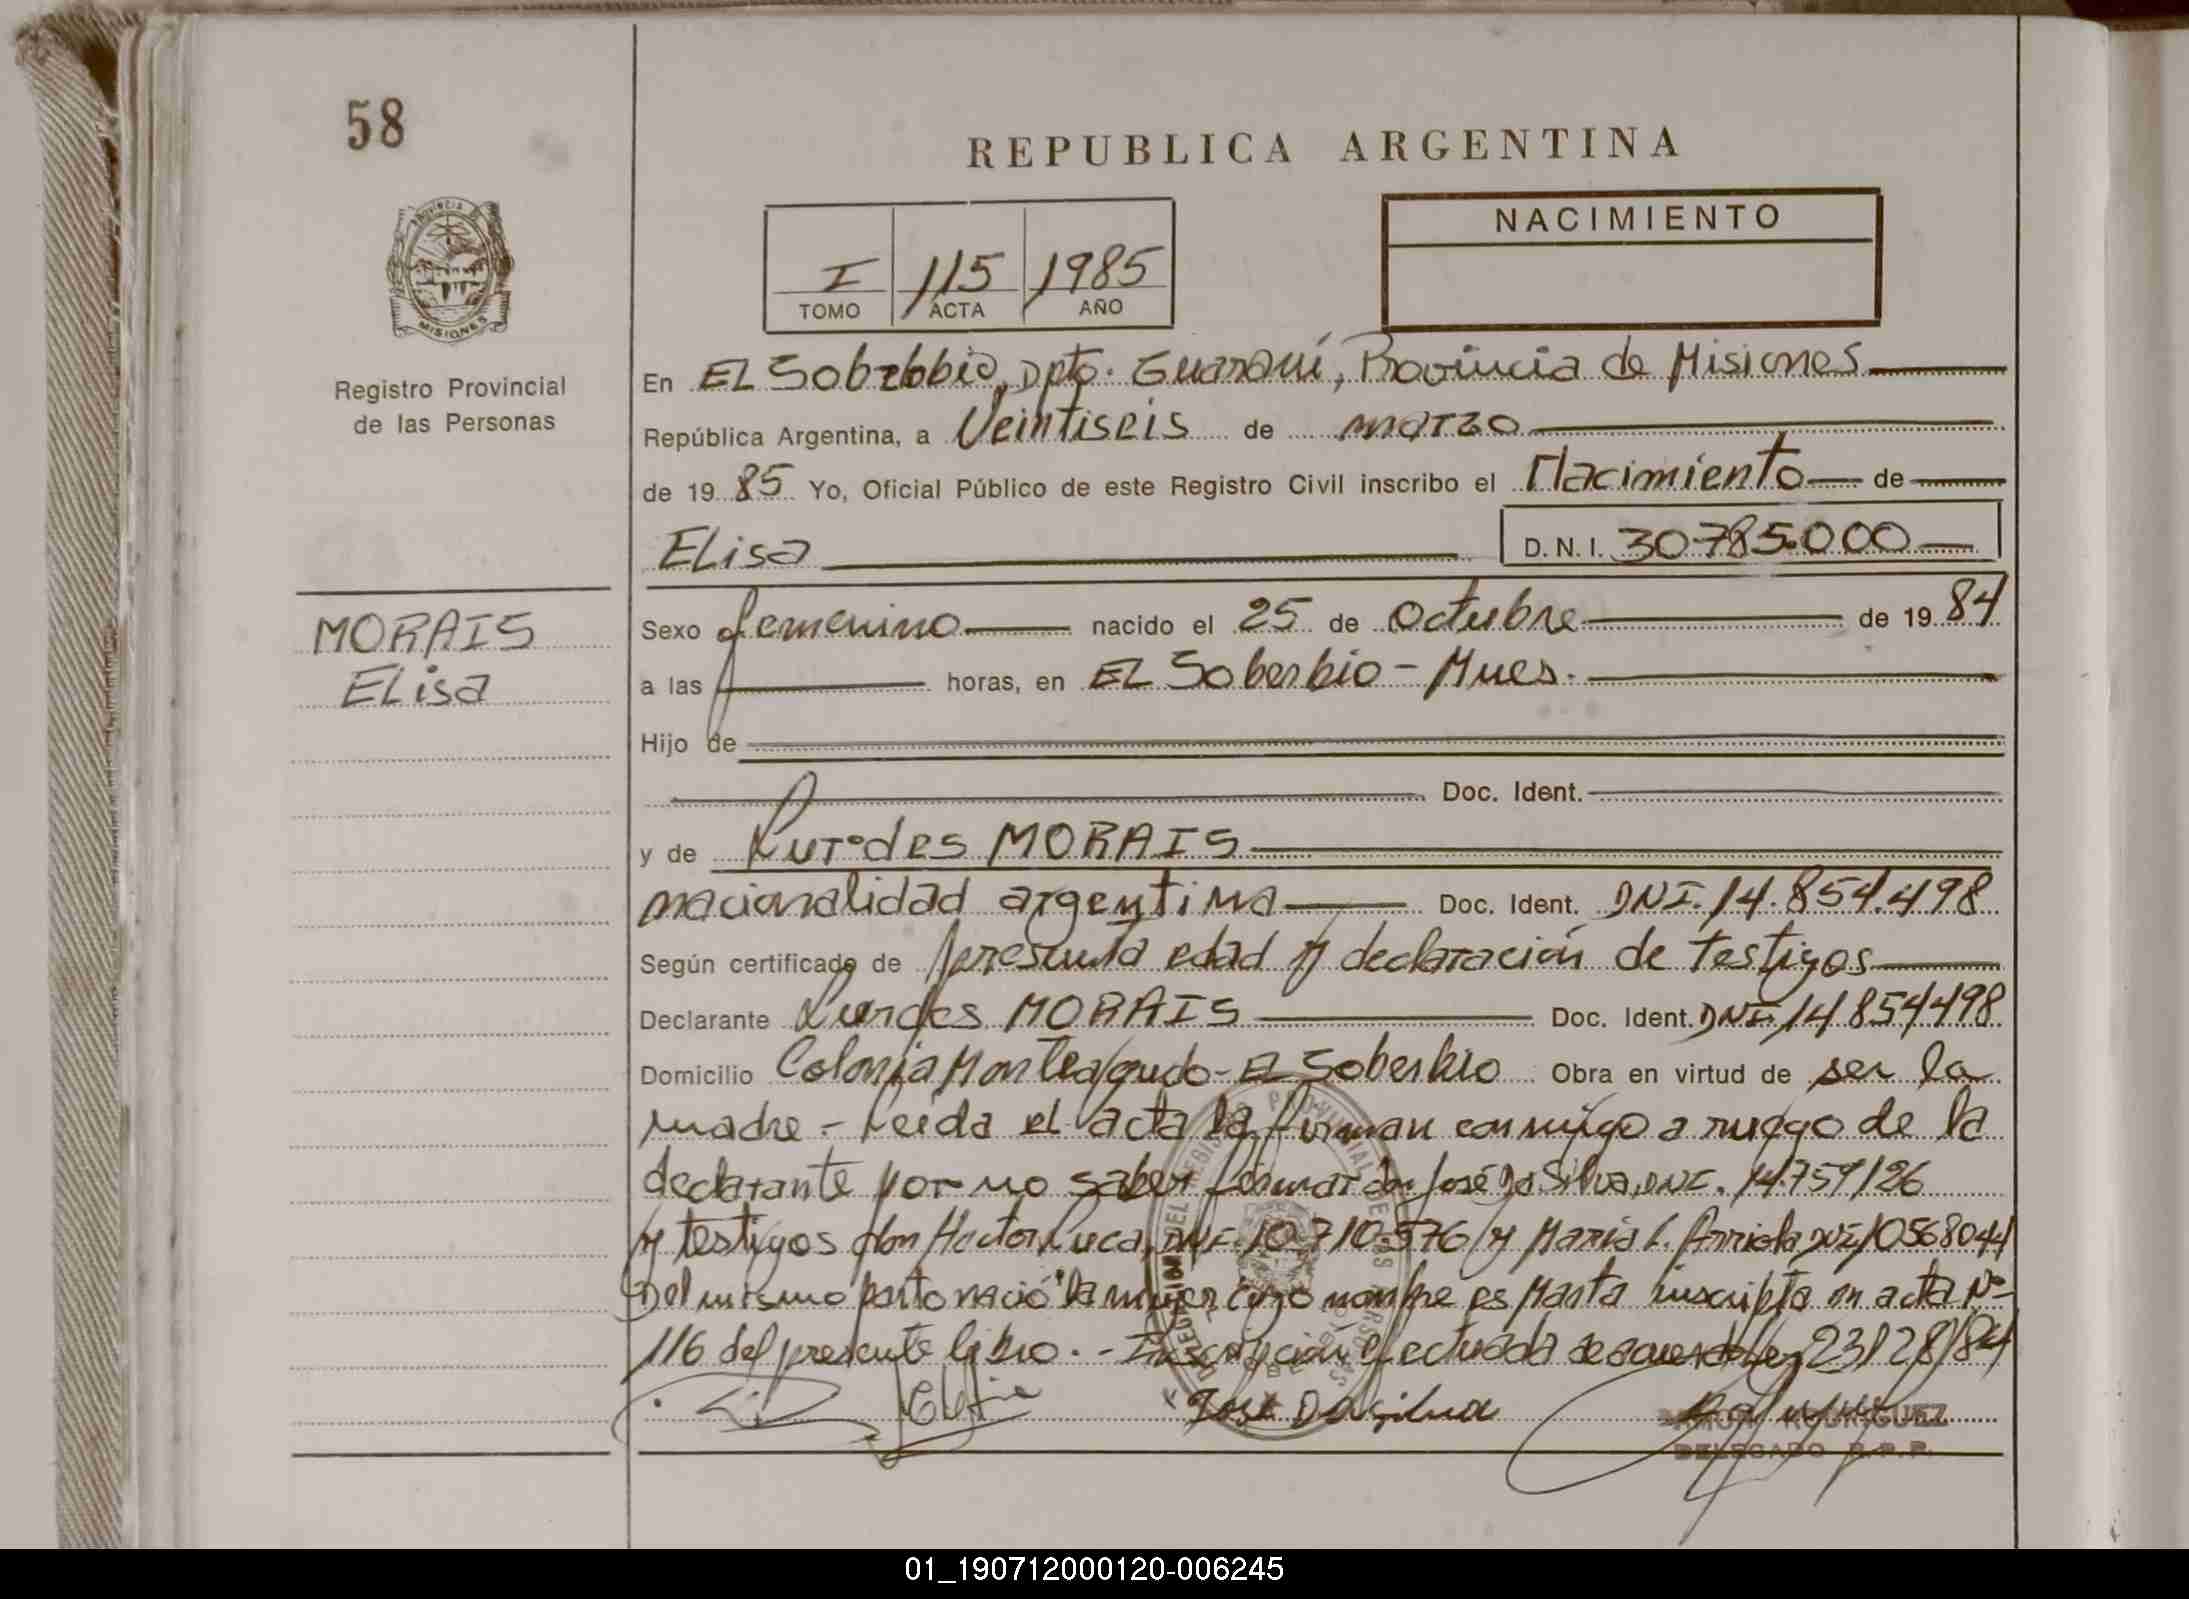 58
REPUBLICA ARGENTINA
PROVINCIA
MISIONES
Registro Provincial
de las Personas
I 115 1985
TOMO ACTA AÑO
NACIMIENTO
En EL Soberbio, Dpto. Guaraní, Provincia de Misiones
República Argentina, a Veintiseis de marzo
de 19 85 Yo, Oficial Público de este Registro Civil inscribo el Nacimiento de
ELisa D.N.I. 30.785.000
MORAIS
ELisa
Sexo femenino nacido el 25 de Octubre de 19 84
a las horas, en EL Soberbio - Mnes.
Hijo de
Doc. Ident.
y de Lurdes MORAIS
nacionalidad argentina Doc. Ident. DNI. 14.854.498
Según certificado de presunta edad y declaración de testigos
Declarante Lurdes MORAIS Doc. Ident. DNI. 14854498
Domicilio Colonia Monteagudo - EL Soberbio Obra en virtud de ser la
madre - Leida el acta la firman conmigo a ruego de la
declarante por no saber firmar don José Da Silva, DNI. 14.759126
y testigos don Hector Luca, DNI. 10.710.576 y Maria L. Arriola DNI 10568044
Del mismo parto nació la mujer cuyo nombre es Marta inscripta en acta Nº
116 del presente libro. - Inscripción efectuada de acuerdo Ley 23128/84
José Da silva
RAMON RODRIGUEZ
DELEGADO R.P.P.
01_190712000120-006245